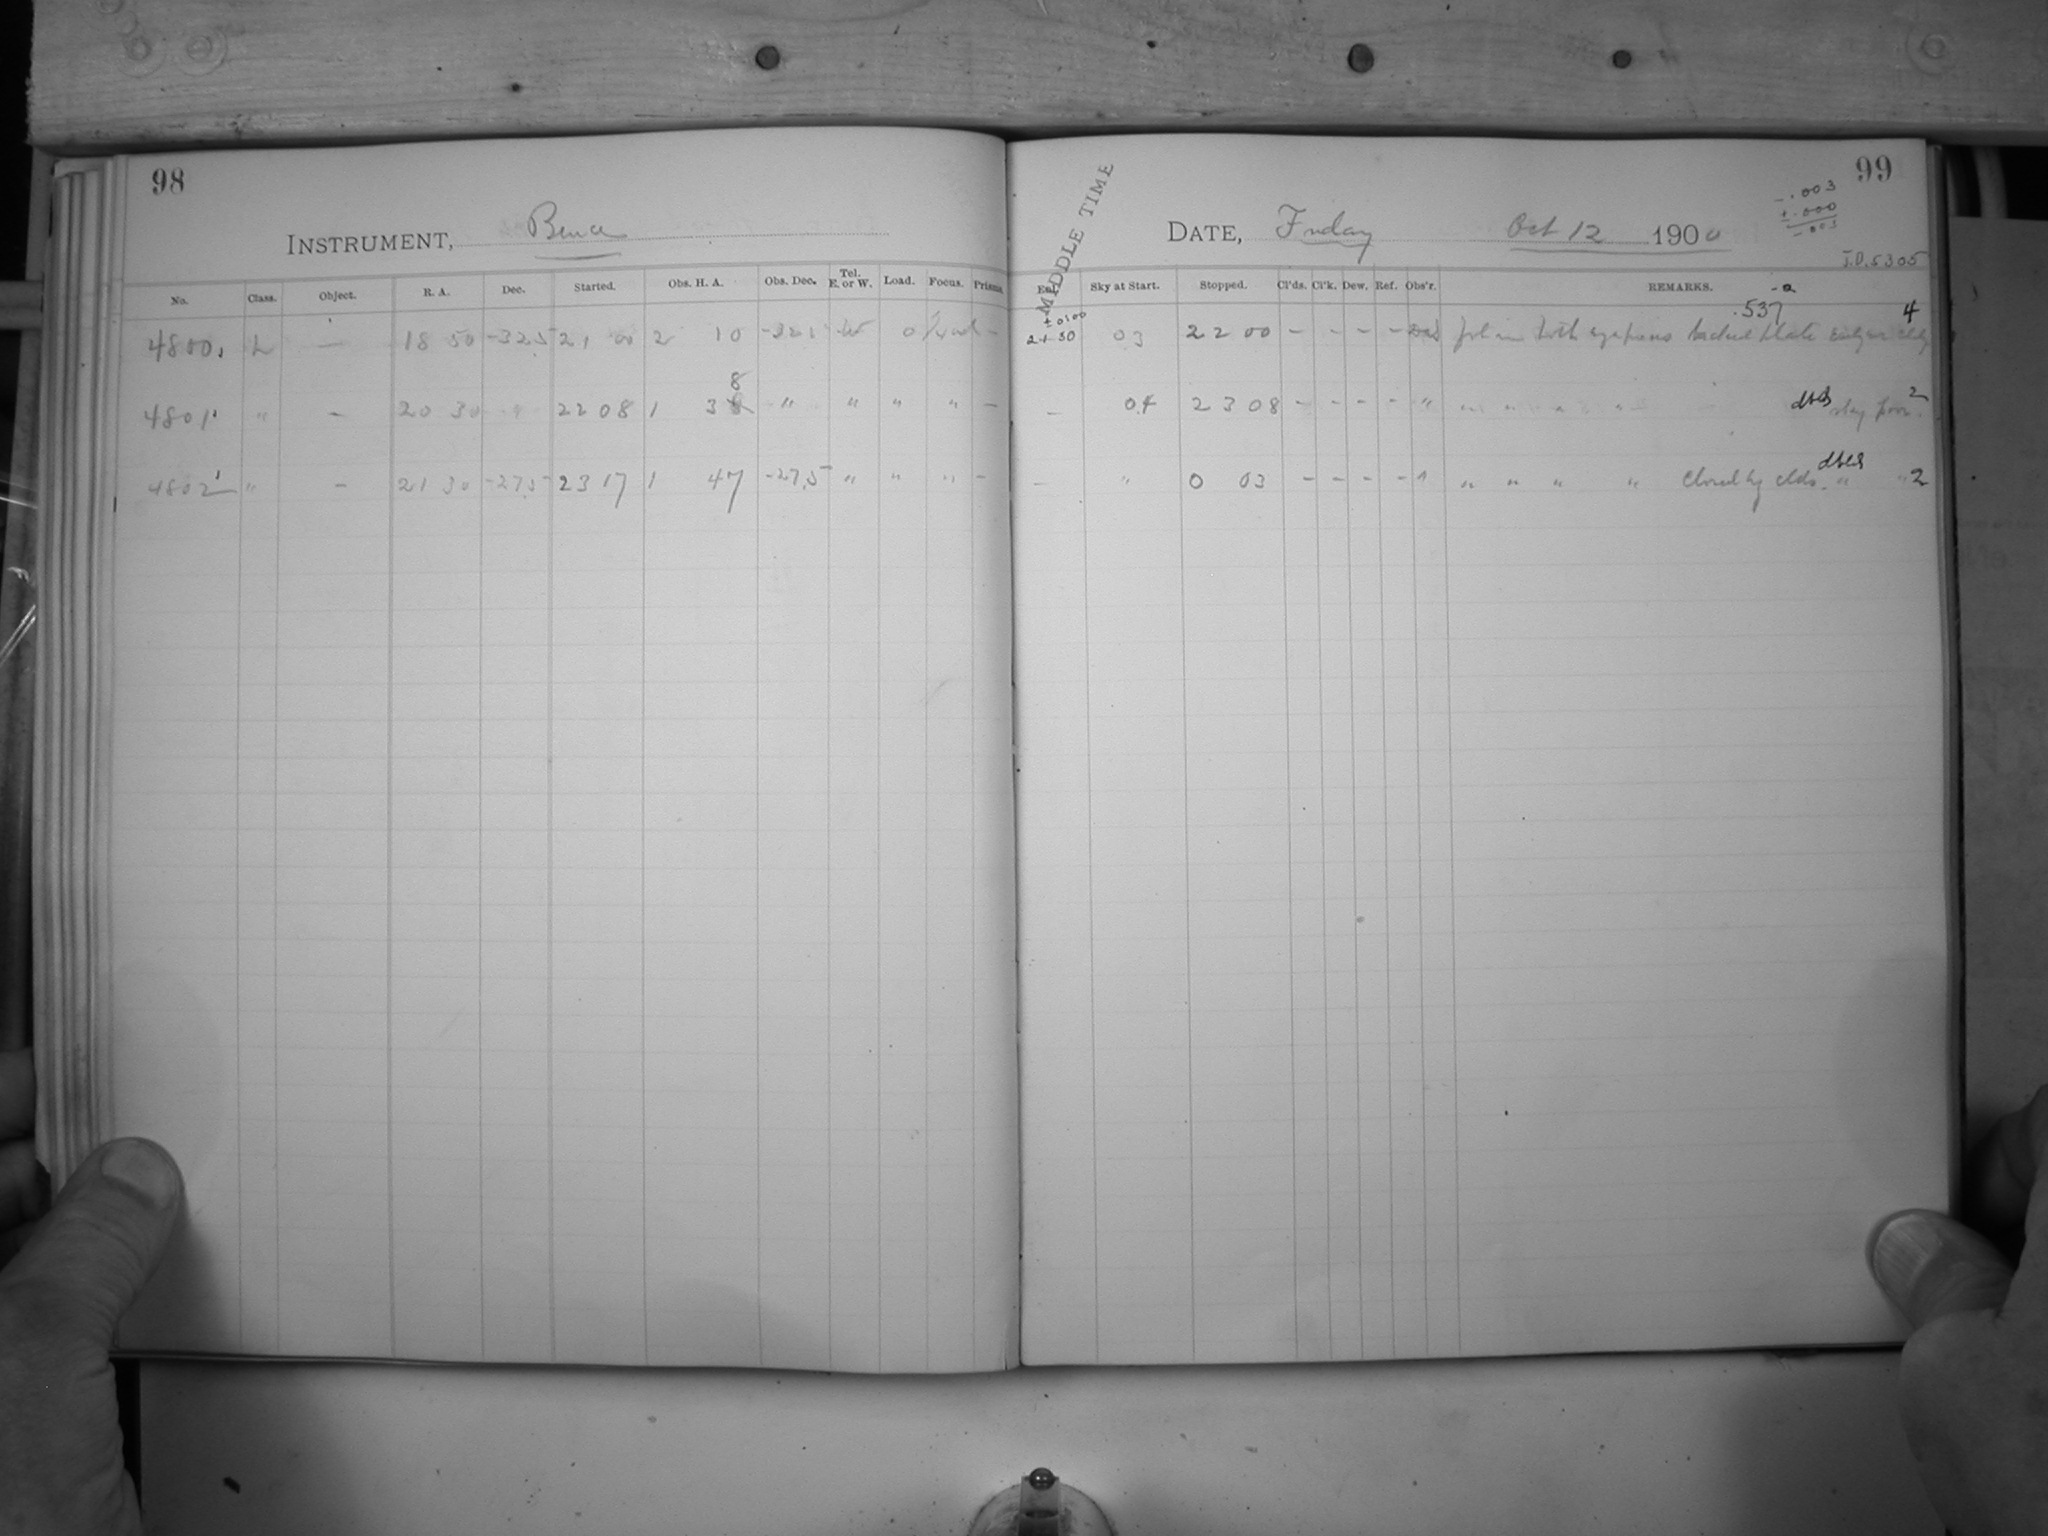 98
INSTRUMENT, Bruce
No. Class. Object. R. A. Dec. Started. Obs. H. A. Obs. Dec. Tel. E. or W. Load. Focus. Prisms.
4800 L — 18 50 -32.5 21 00 2 10 -32.5 W 0 —
4801 " — 20 30 " 22 08 1 38 " " " " —
4802 " — 21 30 -27.5 23 17 1 47 -27.5 " " " —
99
MIDDLE TIME
DATE, Friday Oct 12 1900
-.003
+.000
-.003
J.D. 5305
Sky at Start. Stopped. Cl'ds. Cl'k. Dew. Ref. Obs'r. REMARKS.
.537 4
±0100
21 30 03 22 00 — — — — both eyepieces backed plate
— 04 23 08 — — — — " " " " " dbld sky poor 2
— " 0 03 — — — — " " " " " Closed by clds. dbld " " 2